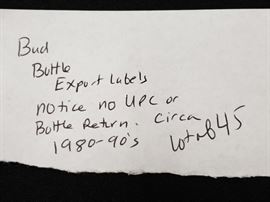 Bud
Bottle
Export Labels
notice no UPC or
Bottle Return. circa
1980-90's
lot of 45